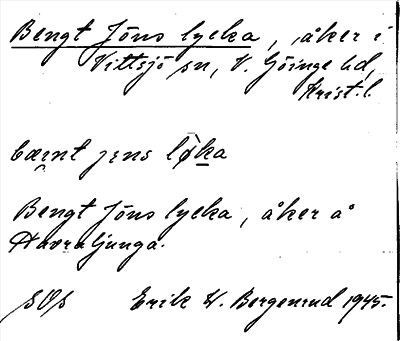 Bengt Jöns lycka, åker i
Vittsjö sn, V. Göinge hd,
Krist. l.
bæɪnt jɪns løka
Bengt Jöns lycka, åker å
Havraljunga.
Erik W. Bergenrud 1945.